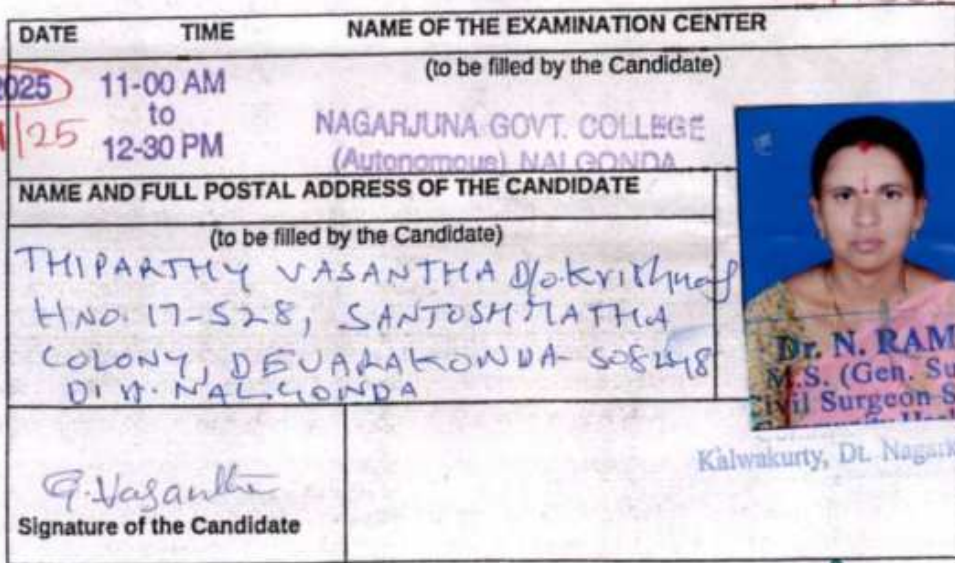 DATE TIME NAME OF THE EXAMINATION CENTER
2025 11-00 AM (to be filled by the Candidate)
1/25 to NAGARJUNA GOVT. COLLEGE
12-30 PM (Autonomous) NALGONDA
NAME AND FULL POSTAL ADDRESS OF THE CANDIDATE
(to be filled by the Candidate)
THIPARTHY VASANTHA D/o.
HNO. 17-528, SANTOSH MATHA
COLONY, DEVARAKONDA 508248
NALGONDA
Dr. N. RAM
M.S. (Gen. Su
Civil Surgeon S
Kalwakurty, Dt. Nagark
G. Vasantha
Signature of the Candidate